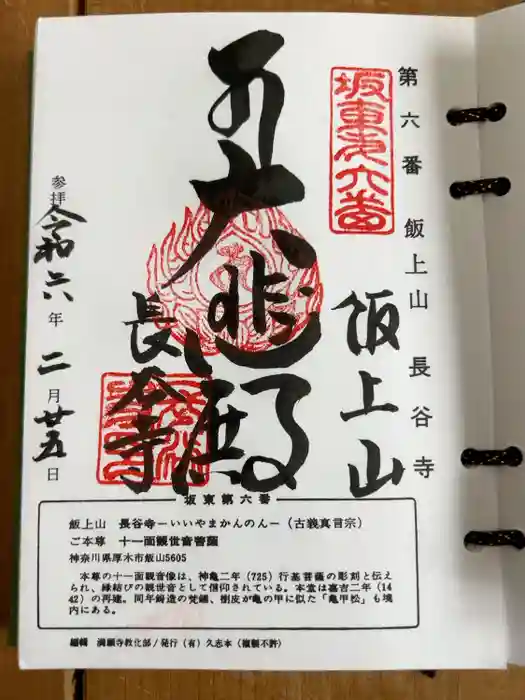 第六番 飯上山 長谷寺
坂東第六番
飯上山
大悲殿
長谷寺
参拝 令和六年 二月廿五日
坂東第六番
飯上山 長谷寺−いいやまかんのん−（古義真言宗）
ご本尊 十一面観世音菩薩
神奈川県厚木市飯山5605
本尊の十一面観音像は、神亀二年（725）行基菩薩の彫刻と伝え
られ、縁結びの観世音として信仰されている。本堂は嘉吉二年（14
42）の再建。同年鋳造の梵鐘、樹皮が亀の甲に似た「亀甲松」も境
内にある。
編輯 満願寺教化部／発行（有）久志本（複製不許）